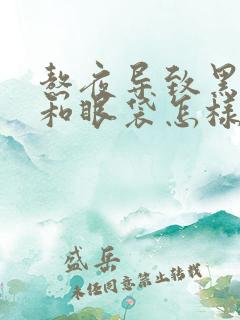 熬夜导致黑
和眼袋怎样
盛岳
未经同意禁止转载